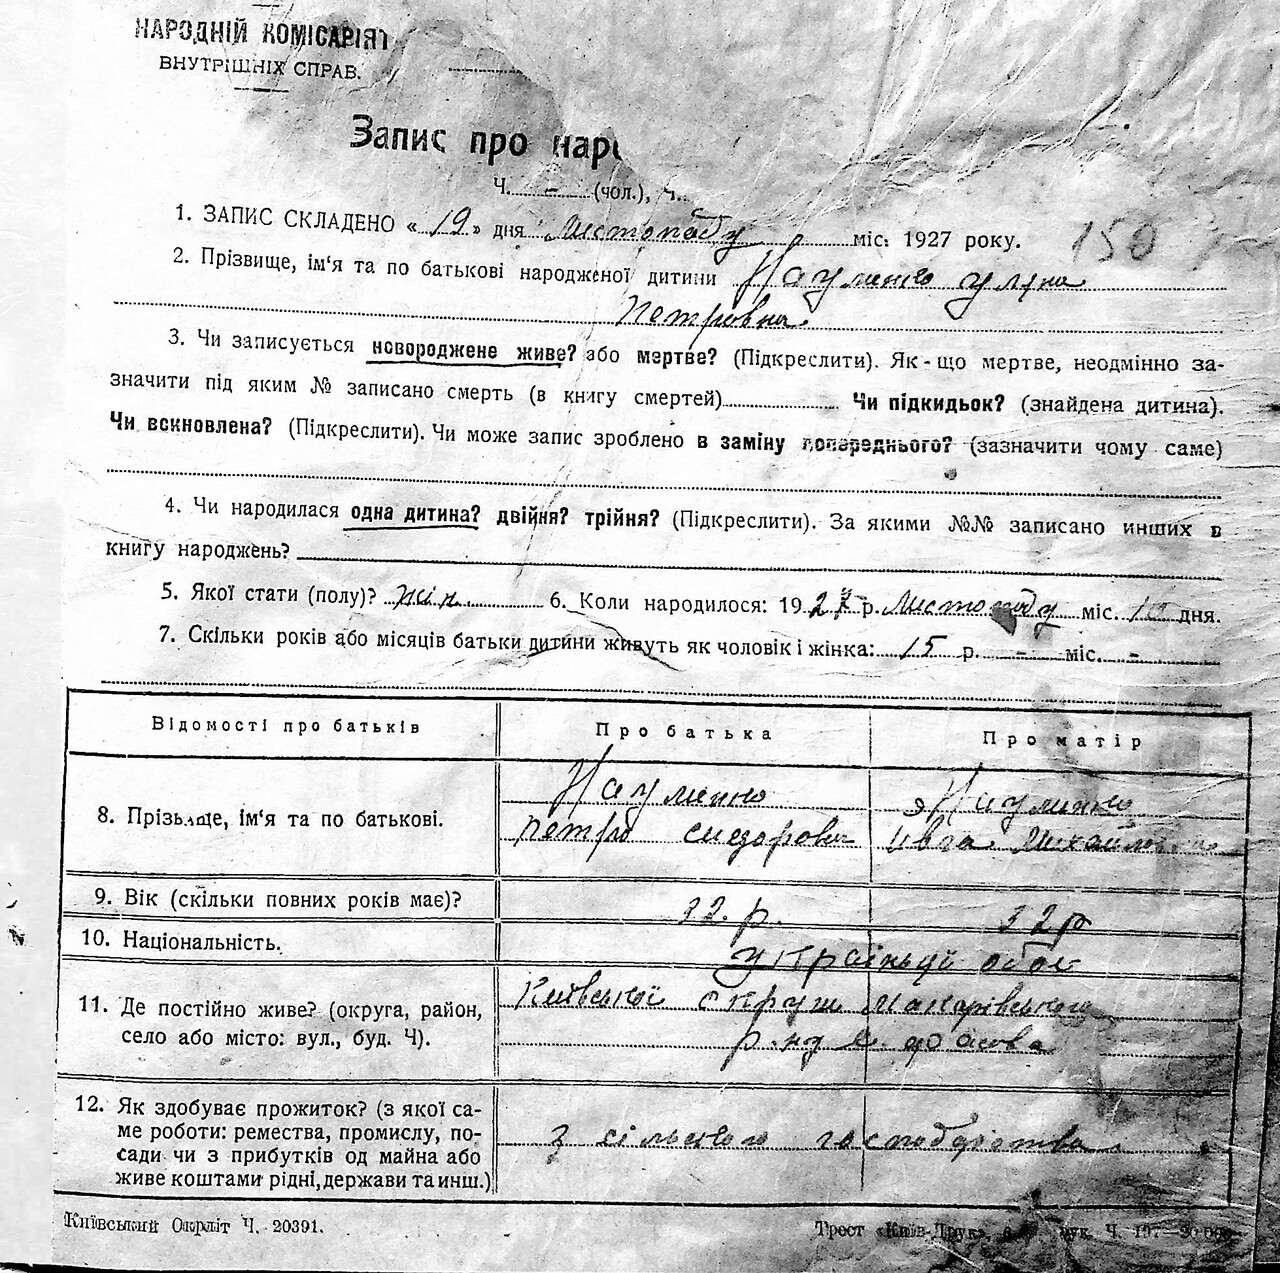 НАРОДНІЙ КОМІСАРІЯТ
ВНУТРІШНІХ СПРАВ.
Запис про нар
Ч. - (чол.), Ч.
1. ЗАПИС СКЛАДЕНО « 19 » дня Листопаду міс. 1927 року.
150
2. Прізвище, ім‘я та по батькові народженої дитини Науменко
Петровна
3. Чи записується новороджене живе? або мертве? (Підкреслити). Як-що мертве, неодмінно за-
значити під яким № записано смерть (в книгу смертей) Чи підкидьок? (знайдена дитина).
Чи всиновлена? (Підкреслити). Чи може запис зроблено в заміну попереднього? (зазначити чому саме)
4. Чи народилася одна дитина? двійня? трійня? (Підкреслити). За якими №№ записано инших в
книгу народжень?
5. Якої стати (полу)? жін. 6. Коли народилося: 1927 р. Листопаду міс. 10 дня.
7. Скільки років або місяців батьки дитини живуть як чоловік і жінка: 15 р. - міс. -
Відомості про батьків Про батька Про матір
8. Прізвище, ім‘я та по батькові. Науменко Науменко
Петро Сидорович Ивга Михайловна
9. Вік (скільки повних років має)? 32. р. 32 р
10. Національність. Українці обоє
11. Де постійно живе? (округа, район,
село або місто: вул., буд. Ч). Київської округи Макарівського
р-ну
12. Як здобуває прожиток? (з якої са-
ме роботи: ремества, промислу, по-
сади чи з прибутків од майна або
живе коштами рідні, держави та инш.) З сільського господарства
Київський Окрліт Ч. 20391.
Трест «Київ-Друк»,